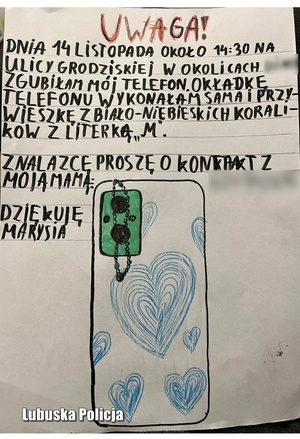 UWAGA!
DNIA 14 LISTOPADA OKOŁO 14:30 NA
ULICY GRODZISKIEJ W OKOLICACH
ZGUBIŁAM MÓJ TELEFON. OKŁADKĘ
TELEFONU WYKONAŁAM SAMA I PRZY-
WIESZKĘ Z BIAŁO-NIEBIESKICH KORALI-
KÓW Z LITERKĄ „M.
ZNALAZCĘ PROSZĘ O KONTAKT Z
MOJĄ MAMĄ:
DZIĘKUJĘ
MARYSIA
Lubuska Policja